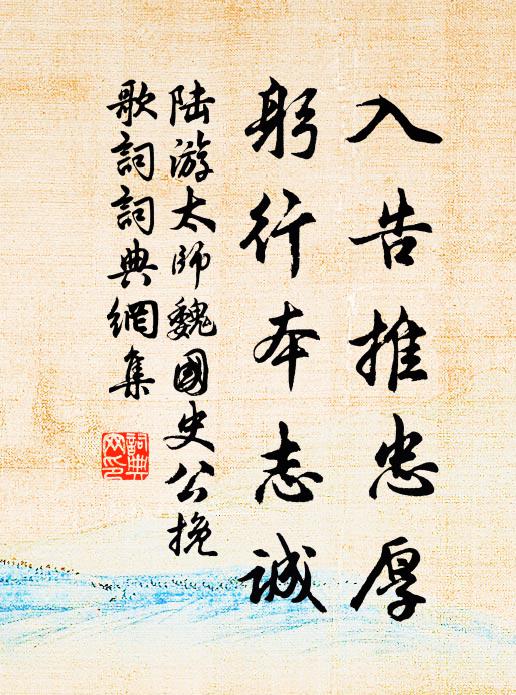 入告推忠厚
躬行本志诚
陆游太师魏國史公挽
歌詞詞典網集
詞典
网印